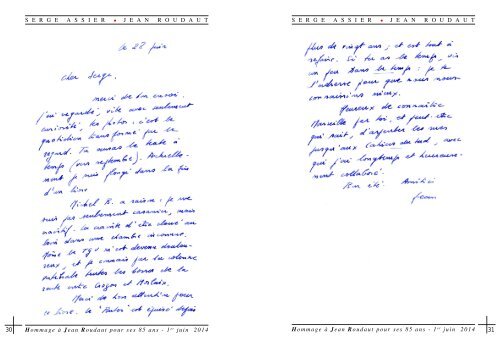 SERGE ASSIER • JEAN ROUDAUT
le 28 juin
cher Serge,
merci de ton envoi.
J'ai regardé, vite avec
curiosité, tes photos. c'est le
quotidien transformé par le
regard. Tu auras le texte à
temps (vers septembre). Actuelle-
ment je suis plongé dans la fin
d'un livre
Michel B. a raison : je ne
suis pas seulement casanier, mais
la crainte d'être cloué au
lit dans une chambre inconnue.
Même le TGV m'est devenu doulou-
reux, et je connais par la colonne
vertébrale toutes les bosses de la
route entre et Morlaix.
Merci de ton attention pour
ce livre. le "Butor" est épuisé depuis
30
Hommage à Jean Roudaut pour ses 85 ans - 1er juin 2014
SERGE ASSIER • JEAN ROUDAUT
plus de vingt ans ; et est tout à
refaire. Si tu as le temps, vis
un peu dans le temps : je te
l'adresse pour que nous nous
connaissions mieux.
Heureux de connaître
Marseille par toi, et peut-être
qui sait, d'arpenter les rues
jusqu'aux Cahiers du Sud, avec
qui j'ai longtemps et heureuse-
ment collaboré.
Bon été. Amitiés
Jean
Hommage à Jean Roudaut pour ses 85 ans - 1er juin 2014
31